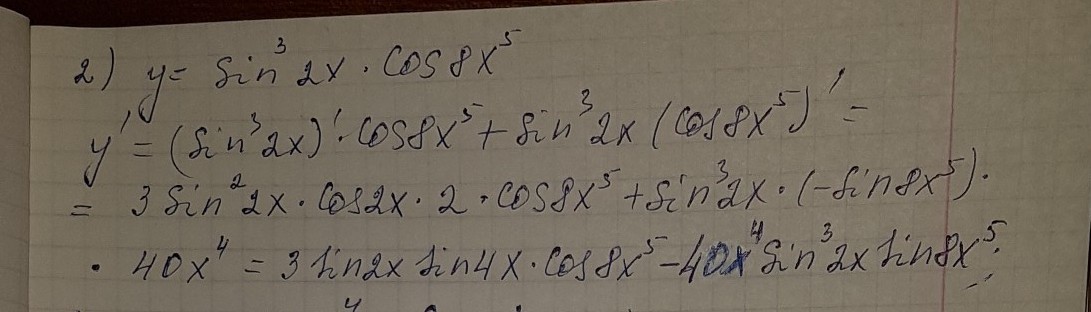 2) y = sin³2x · cos8x⁵
y' = (sin³2x)' · cos8x⁵ + sin³2x (cos8x⁵)' =
= 3 sin²2x · cos2x · 2 · cos8x⁵ + sin³2x · (-sin8x⁵) ·
· 40x⁴ = 3 sin2x sin4x · cos8x⁵ - 40x⁴ sin³2x sin8x⁵;